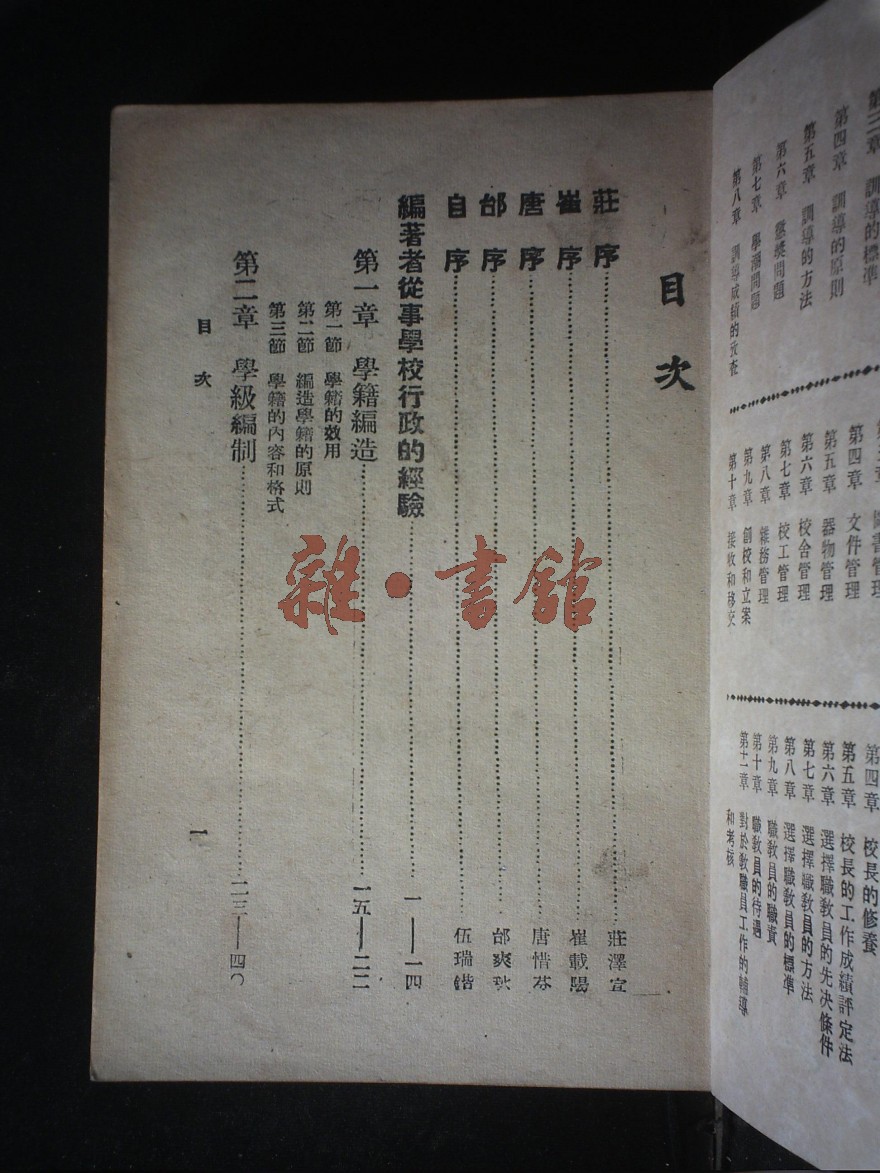 第四章 訓導的原則
第五章 訓導的方法
第六章 懲獎問題
第七章 學潮問題
第八章 訓導成績的攷查
第四章 文件管理
第五章 器物管理
第六章 校舍管理
第七章 校工管理
第八章 雜務管理
第九章 創校和立案
第十章 接收和移交
第四章 校長的修養
第五章 校長的工作成績評定法
第六章 選擇職敎員的先決條件
第七章 選擇職敎員的方法
第八章 選擇職敎員的標準
第九章 職敎員的職責
第十章 職敎員的待遇
第十一章 對於敎職員工作的輔導
和考核
目次
莊序……莊澤宣
崔序……崔載陽
唐序……唐惜芬
邰序……邰爽秋
自序……伍瑞鍇
編著者從事學校行政的經驗……一—一四
第一章 學籍編造……一五—二二
第一節 學籍的效用
第二節 編造學籍的原則
第三節 學籍的內容和格式
第二章 學級編制……二三—四〇
目次 一
雜·書館